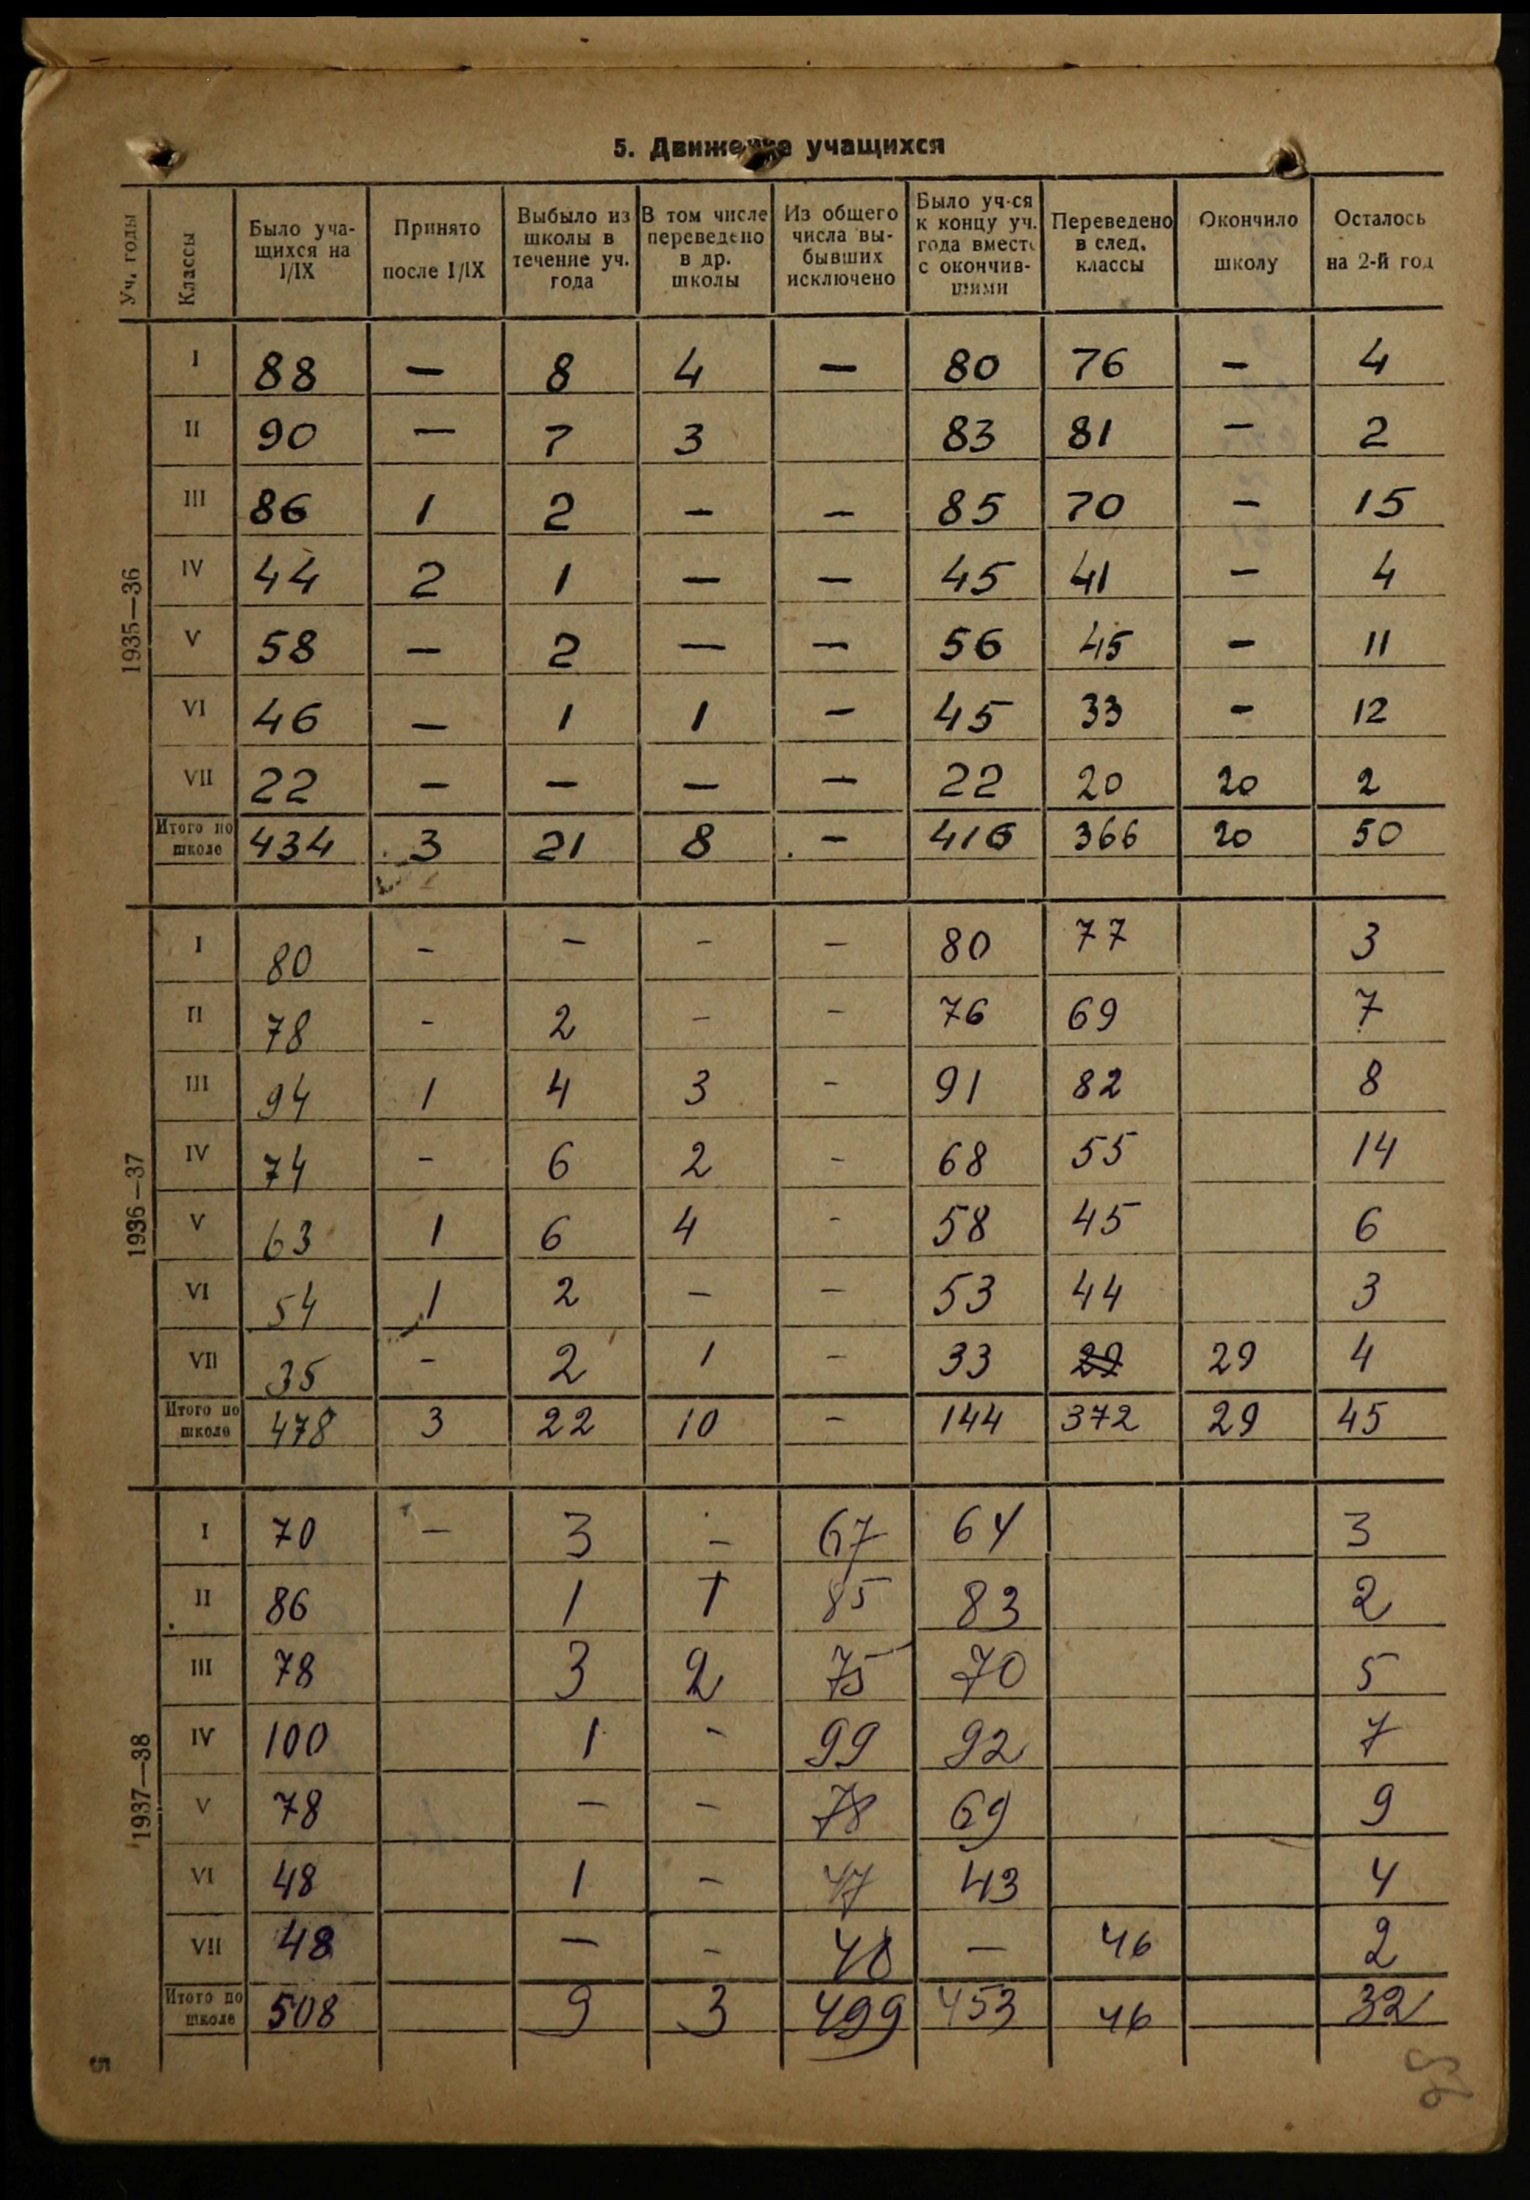 5. Движение учащихся
Уч. годы | Классы | Было уча-щихся на I/IX | Принято после I/IX | Выбыло из школы в течение уч. года | В том числе переведено в др. школы | Из общего числа вы-бывших исключено | Было уч-ся к концу уч. года вместе с окончив-шими | Переведено в след. классы | Окончило школу | Осталось на 2-й год
1935—36
I | 88 | — | 8 | 4 | — | 80 | 76 | — | 4
II | 90 | — | 7 | 3 | | 83 | 81 | — | 2
III | 86 | 1 | 2 | — | — | 85 | 70 | — | 15
IV | 44 | 2 | 1 | — | — | 45 | 41 | — | 4
V | 58 | — | 2 | — | — | 56 | 45 | — | 11
VI | 46 | — | 1 | 1 | — | 45 | 33 | — | 12
VII | 22 | — | — | — | — | 22 | 20 | 20 | 2
Итого по школе | 434 | 3 | 21 | 8 | — | 416 | 366 | 20 | 50
1936—37
I | 80 | — | — | — | — | 80 | 77 | | 3
II | 78 | — | 2 | — | — | 76 | 69 | | 7
III | 94 | 1 | 4 | 3 | — | 91 | 82 | | 8
IV | 74 | — | 6 | 2 | — | 68 | 55 | | 14
V | 63 | 1 | 6 | 4 | — | 58 | 45 | | 6
VI | 54 | 1 | 2 | — | — | 53 | 44 | | 3
VII | 35 | — | 2 | 1 | — | 33 | 29 | 29 | 4
Итого по школе | 478 | 3 | 22 | 10 | — | 144 | 372 | 29 | 45
1937—38
I | 70 | — | 3 | — | 67 | 64 | | | 3
II | 86 | | 1 | 1 | 85 | 83 | | | 2
III | 78 | | 3 | 2 | 75 | 70 | | | 5
IV | 100 | | 1 | — | 99 | 92 | | | 7
V | 78 | | — | — | 78 | 69 | | | 9
VI | 48 | | 1 | — | 47 | 43 | | | 4
VII | 48 | | — | — | 48 | — | 46 | | 2
Итого по школе | 508 | | 9 | 3 | 499 | 453 | 46 | | 32
5